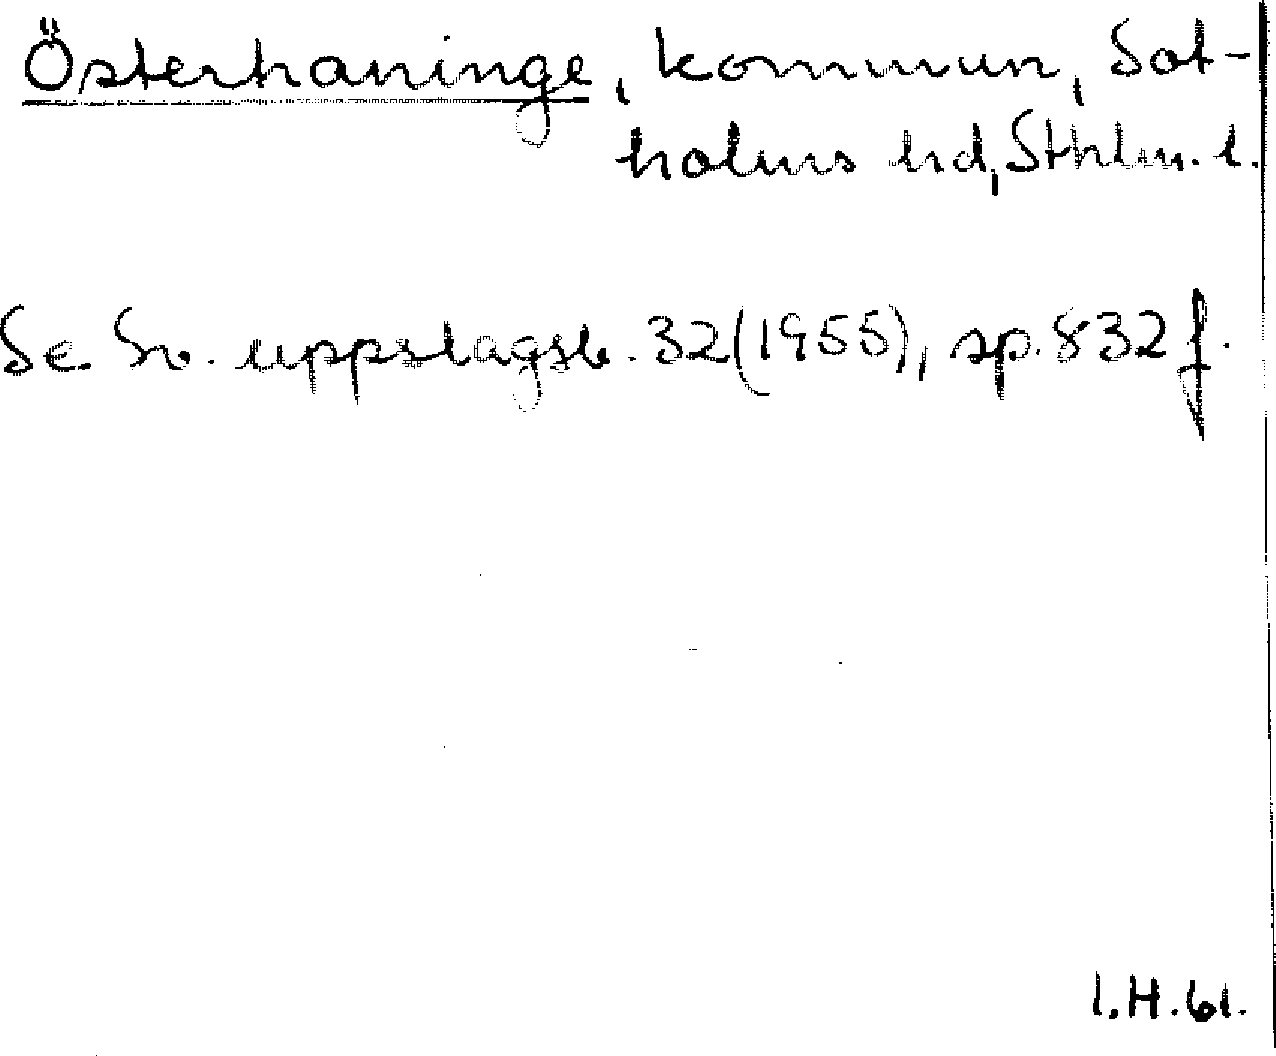 Österhaninge, kommun, Sot-
holms hd, Sthlm. l.
Se Sv. uppslagsb. 32(1955), sp. 832 f.
I.H.61.